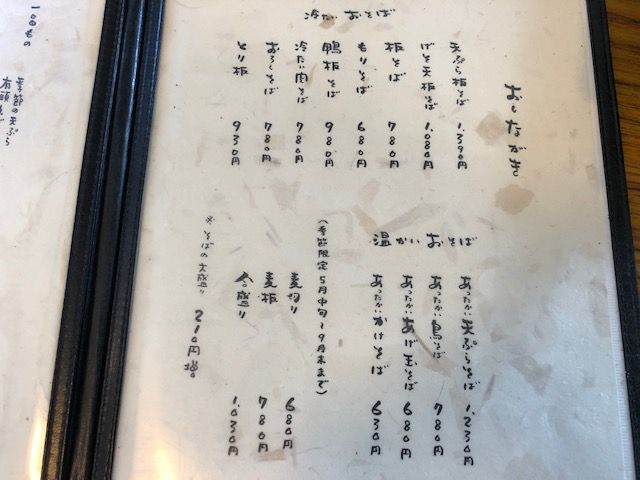 おしながき
冷たいおそば
天ぷら板そば 1,390円
げそ天板そば 1,080円
板そば 780円
もりそば 680円
鴨板そば 980円
冷たい肉そば 780円
おろしそば 780円
とり板 930円
温かいおそば
あったかい天ぷらそば 1,230円
あったかい鳥そば 780円
あったかいあげ玉そば 680円
あったかいかけそば 630円
(季節限定 5月中旬~9月末まで)
麦切り 680円
麦板 780円
合盛り 1,030円
※そばの大盛り 210円増
季節の天ぷら